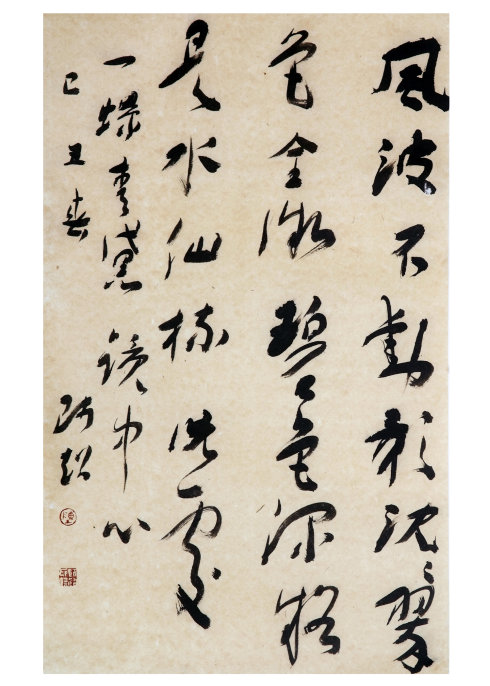 風波不動影沈〻翠
色全微碧色深疑
是水仙梳洗處
一螺青黛鏡中心
己丑春